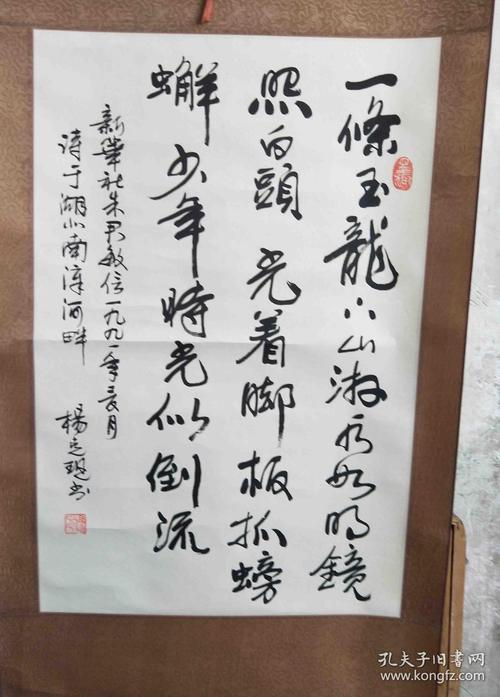 一條玉龍下山水如明鏡
照白頭 光着脚板抓螃
蠏 少年時光似倒流
新華社朱君敏信一九九一年月
诗于湖北南漳河畔
楊书
孔夫子旧书网
www.kongfz.com